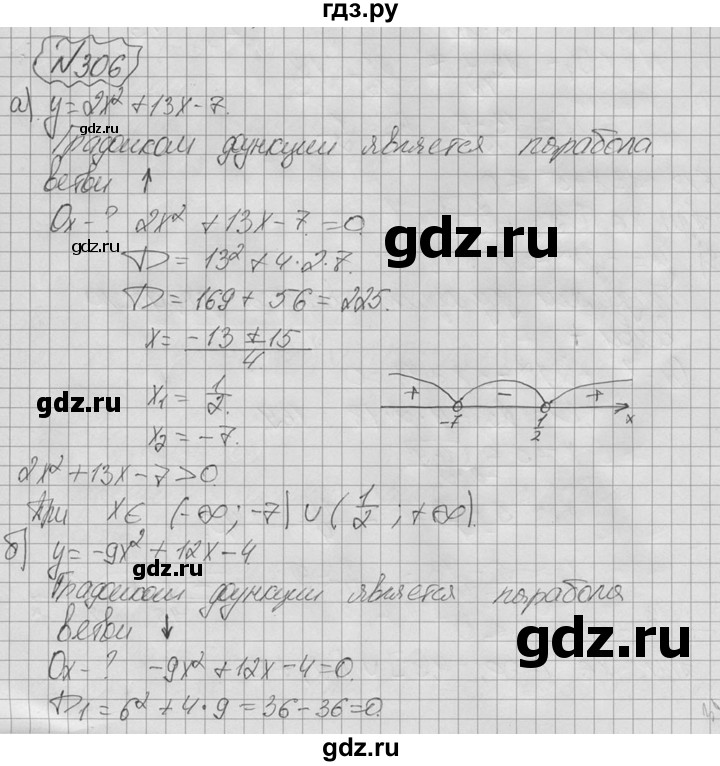 гдз.ру
№306
а) y=2x²+13x-7.
gdz.ru
Графиком функции является парабола
ветви ↑
Ox-? 2x²+13x-7=0.
gdz.ru
gdz.ru
D=13²+4·2·7.
D=169+56=225.
x=(-13±15)/4
gdz.ru
x₁=1/2.
+ - +
-7 1/2 x
x₂=-7.
2x²+13x-7>0.
gdz.ru
При x∈(-∞;-7)∪(1/2;+∞).
б) y=-9x²+12x-4
gdz.ru
Графиком функции является парабола
ветви ↓
gdz.ru
Ox-? -9x²+12x-4=0.
gdz.ru
D₁=6²+4·9=36-36=0.
gdz.ru